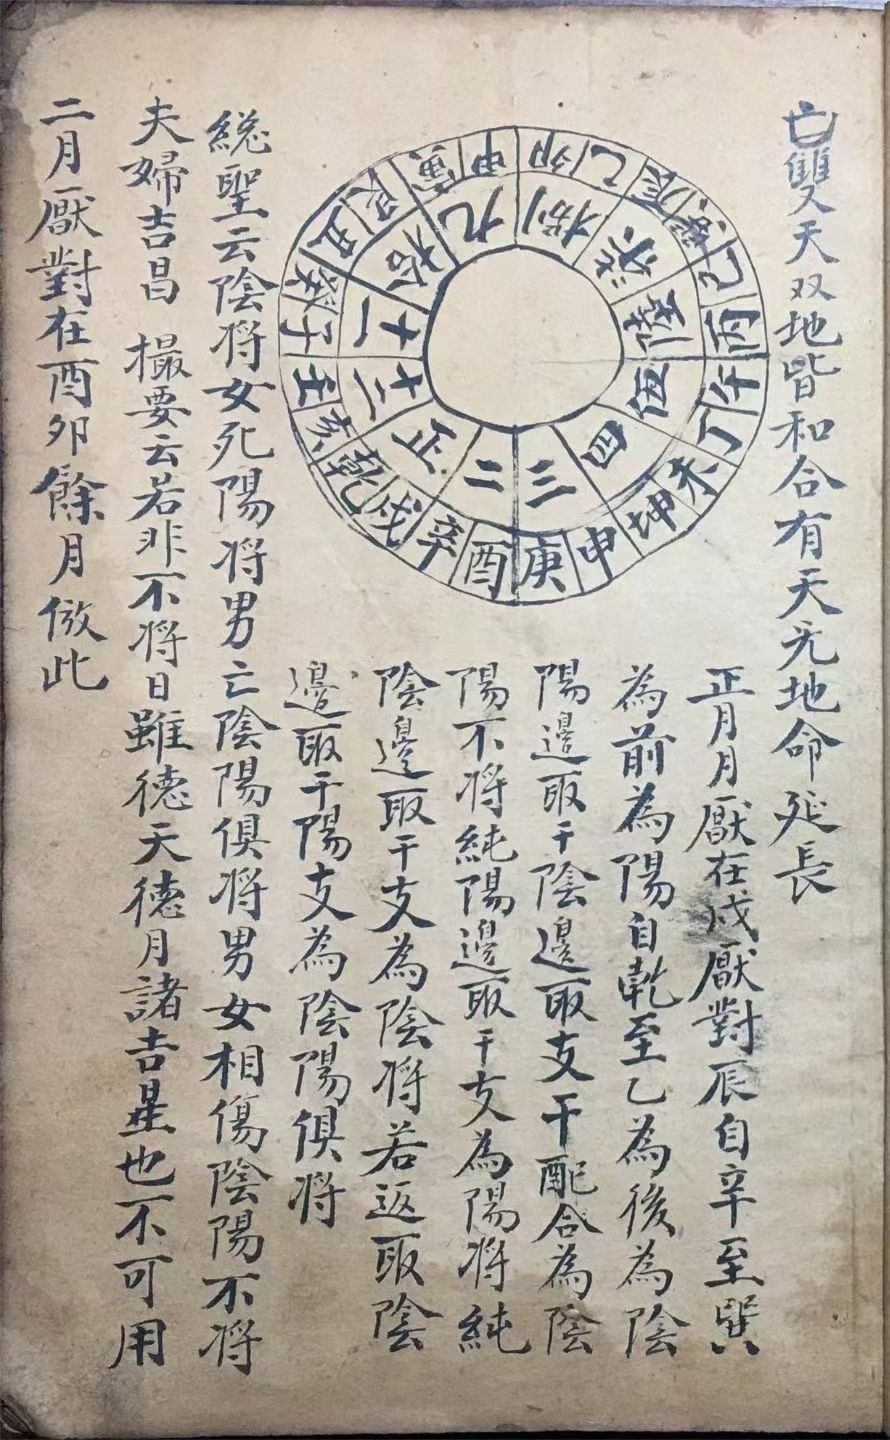 亡雙天双地皆和合有天无地命延長
卯乙辰巽巳丙午丁未坤申庚酉辛戌乾亥壬子癸丑艮寅甲
正二三四伍陸柒捌九拾十一十二
正月月厭在戌厭對辰自辛至巽
為前為陽自乾至乙為後為陰
陽邊取干陰邊取支干配合為陰
陽不将純陽邊取干支為陽将純
陰邊取干支為陰将若返取陰
邊取干陽支為陰陽俱将
総聖云陰将女死陽将男亡陰陽俱将男女相傷陰陽不将
夫婦吉昌 撮要云若非不将日雖德天德月諸吉星也不可用
二月厭對在酉卯餘月倣此